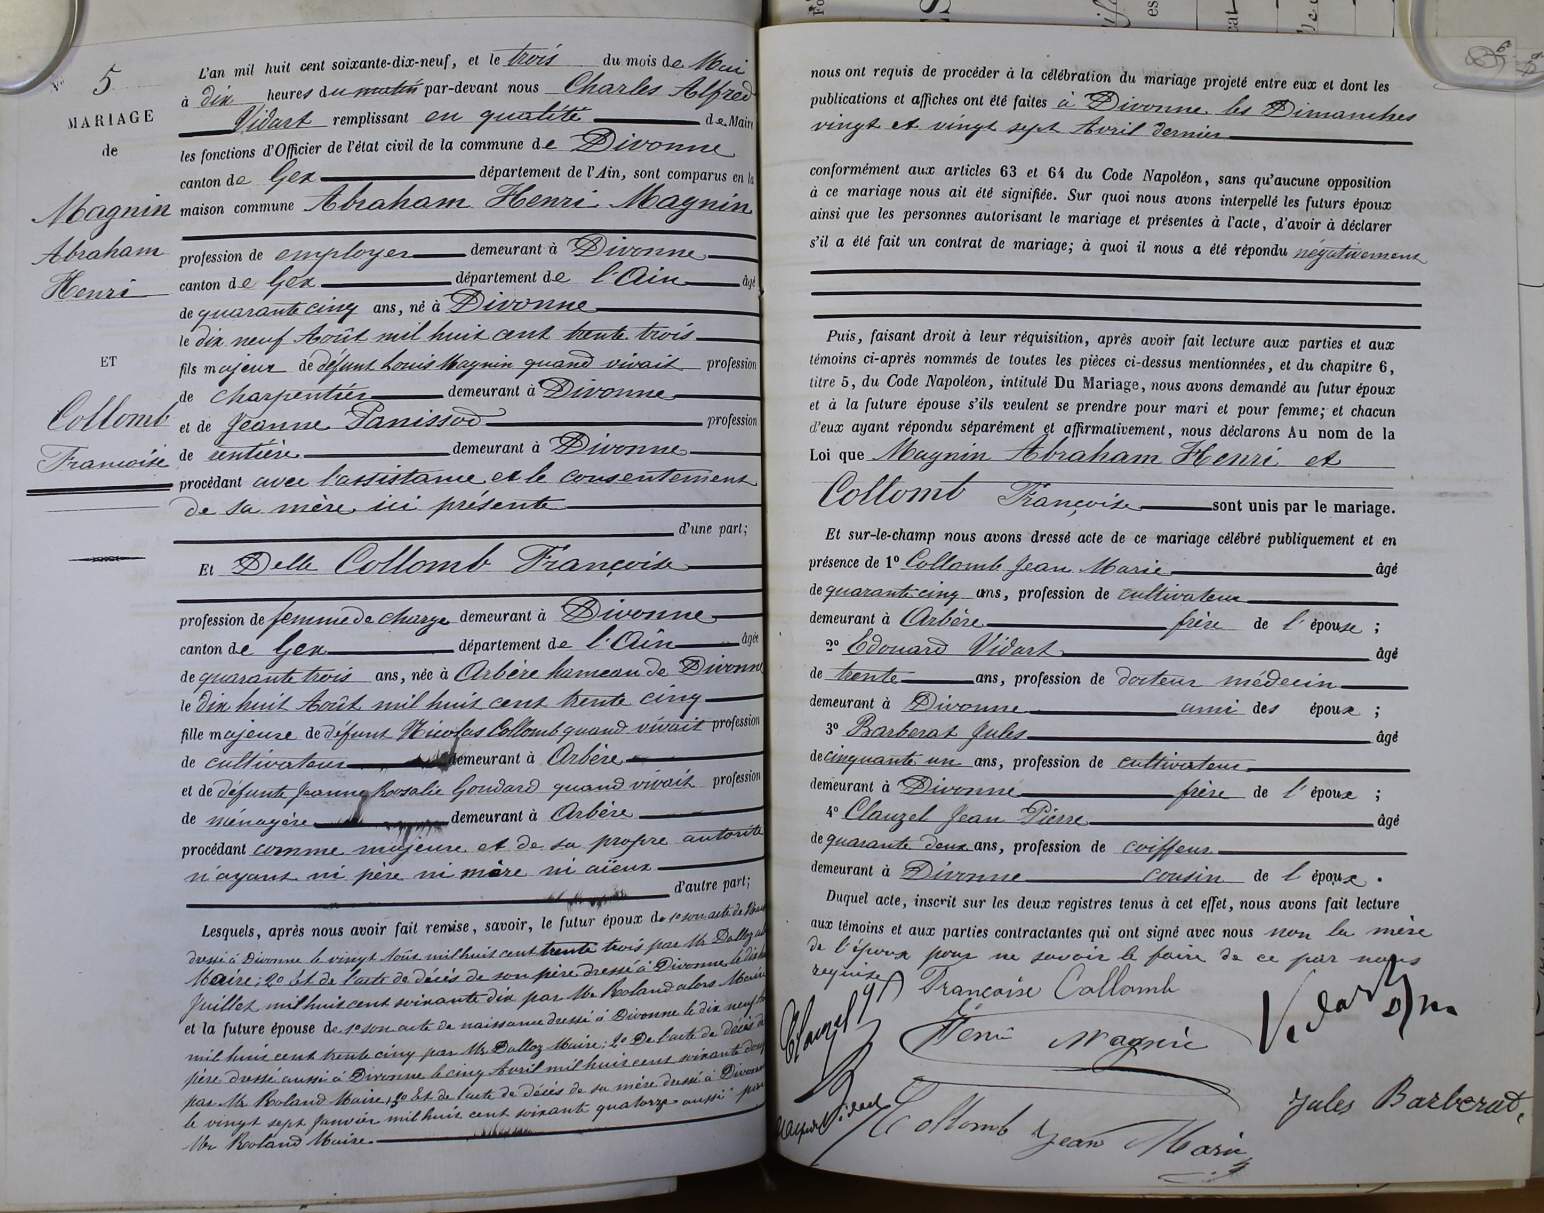 N° 5
MARIAGE
de
Magnin
Abraham
Henri
ET
Collomb
Francoise
L'an mil huit cent soixante-dix-neuf, et le trois du mois de Mai
à dix heures du matin par-devant nous Charles Alfred
Vidart remplissant en qualité de Maire
les fonctions d'Officier de l'état civil de la commune de Divonne
canton de Gex département de l'Ain, sont comparus en la
maison commune Abraham Henri Magnin
profession de employer demeurant à Divonne
canton de Gex département de l'Ain âgé
de quarante cinq ans, né à Divonne
le dix neuf Août mil huit cent trente trois
fils majeur de défunt Louis Magnin quand vivait profession
de charpentier demeurant à Divonne
et de Jeanne Panissod profession
de rentière demeurant à Divonne
procédant avec l'assistance et le consentement
de sa mère ici présente
d'une part;
Et Delle Collomb Françoise
profession de femme de charge demeurant à Divonne
canton de Gex département de l'Ain âgée
de quarante trois ans, née à Arbère hameau de Divonne
le dix huit Août mil huit cent trente cinq
fille majeure de défunt Nicolas Collomb quand vivait profession
de cultivateur demeurant à Arbère
et de défunte Jeanne Rosalie Goudard quand vivait profession
de ménagère demeurant à Arbère
procédant comme majeure et de sa propre autorité
n'ayant ni père ni mère ni aïeux
d'autre part;
Lesquels, après nous avoir fait remise, savoir, le futur époux de 1° son acte de
dressé à Divonne le vingt Août mil huit cent trente trois par Mr Dalloz
Maire; 2° Et de l'acte de décès de son père dressé à Divonne le
Juillet mil huit cent soixante dix par Mr Roland alors Maire
et la future épouse de 1° son acte de naissance dressé à Divonne le dix neuf
mil huit cent trente cinq par Mr Dalloz Maire; 2° De l'acte de décès de
père dressé aussi à Divonne le cinq Avril mil huit cent soixante
par Mr Roland Maire; 3° Et de l'acte de décès de sa mère dressé à Divonne
le vingt sept Janvier mil huit cent soixante quatorze aussi par
Mr Roland Maire.
nous ont requis de procéder à la célébration du mariage projeté entre eux et dont les
publications et affiches ont été faites à Divonne les Dimanches
vingt et vingt sept Avril dernier
conformément aux articles 63 et 64 du Code Napoléon, sans qu'aucune opposition
à ce mariage nous ait été signifiée. Sur quoi nous avons interpellé les futurs époux
ainsi que les personnes autorisant le mariage et présentes à l'acte, d'avoir à déclarer
s'il a été fait un contrat de mariage; à quoi il nous a été répondu négativement
Puis, faisant droit à leur réquisition, après avoir fait lecture aux parties et aux
témoins ci-après nommés de toutes les pièces ci-dessus mentionnées, et du chapitre 6,
titre 5, du Code Napoléon, intitulé Du Mariage, nous avons demandé au futur époux
et à la future épouse s'ils veulent se prendre pour mari et pour femme; et chacun
d'eux ayant répondu séparément et affirmativement, nous déclarons Au nom de la
Loi que Magnin Abraham Henri et
Collomb Françoise sont unis par le mariage.
Et sur-le-champ nous avons dressé acte de ce mariage célébré publiquement et en
présence de 1° Collomb Jean Marie âgé
de quarante-cinq ans, profession de cultivateur
demeurant à Arbère frère de l'épouse;
2° Edouard Vidart âgé
de trente ans, profession de docteur médecin
demeurant à Divonne ami des époux;
3° Barberat Jules âgé
de cinquante un ans, profession de cultivateur
demeurant à Divonne frère de l'époux;
4° Clauzel Jean Pierre âgé
de quarante deux ans, profession de coiffeur
demeurant à Divonne cousin de l'époux.
Duquel acte, inscrit sur les deux registres tenus à cet effet, nous avons fait lecture
aux témoins et aux parties contractantes qui ont signé avec nous non la mère
de l'époux pour ne savoir le faire de ce par nous
requise
Françoise Collomb
Clauzel
Henri Magnin
Vidart
Jules Barberat.
Collomb Jean Marie